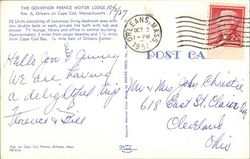 THE GOVERNOR PRENCE MOTOR LODGE
Rte. 6, Orleans on Cape Cod, Massachusetts
26 Units consisting of luxurious living-bedroom area with
two double beds in each, private tile bath with tub and
shower. TV lounge, library and office in central building
Approximately 3 miles from ocean beaches and 1½ miles
from Cape Cod Bay. ½ mile East of Orleans Center.
ORLEANS, MASS
OCT
PM
POST CARD
Hello Don & Jenny
We are having
a delightful trip
Florence & Bill
Mr & Mrs John Christie
618 East St. Clair Ave
Cleveland
Ohio